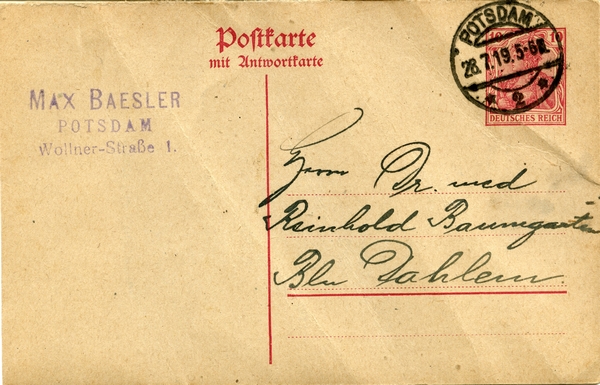 Postkarte
mit Antwortkarte
POTSDAM
28.7.19.5-6N.
* 2 *
10 10
DEUTSCHES REICH
MAX BAESLER
POTSDAM
Wollner-Straße 1.
Herrn Dr. med
Reinhold Baumgarten
Bln Dahlem.